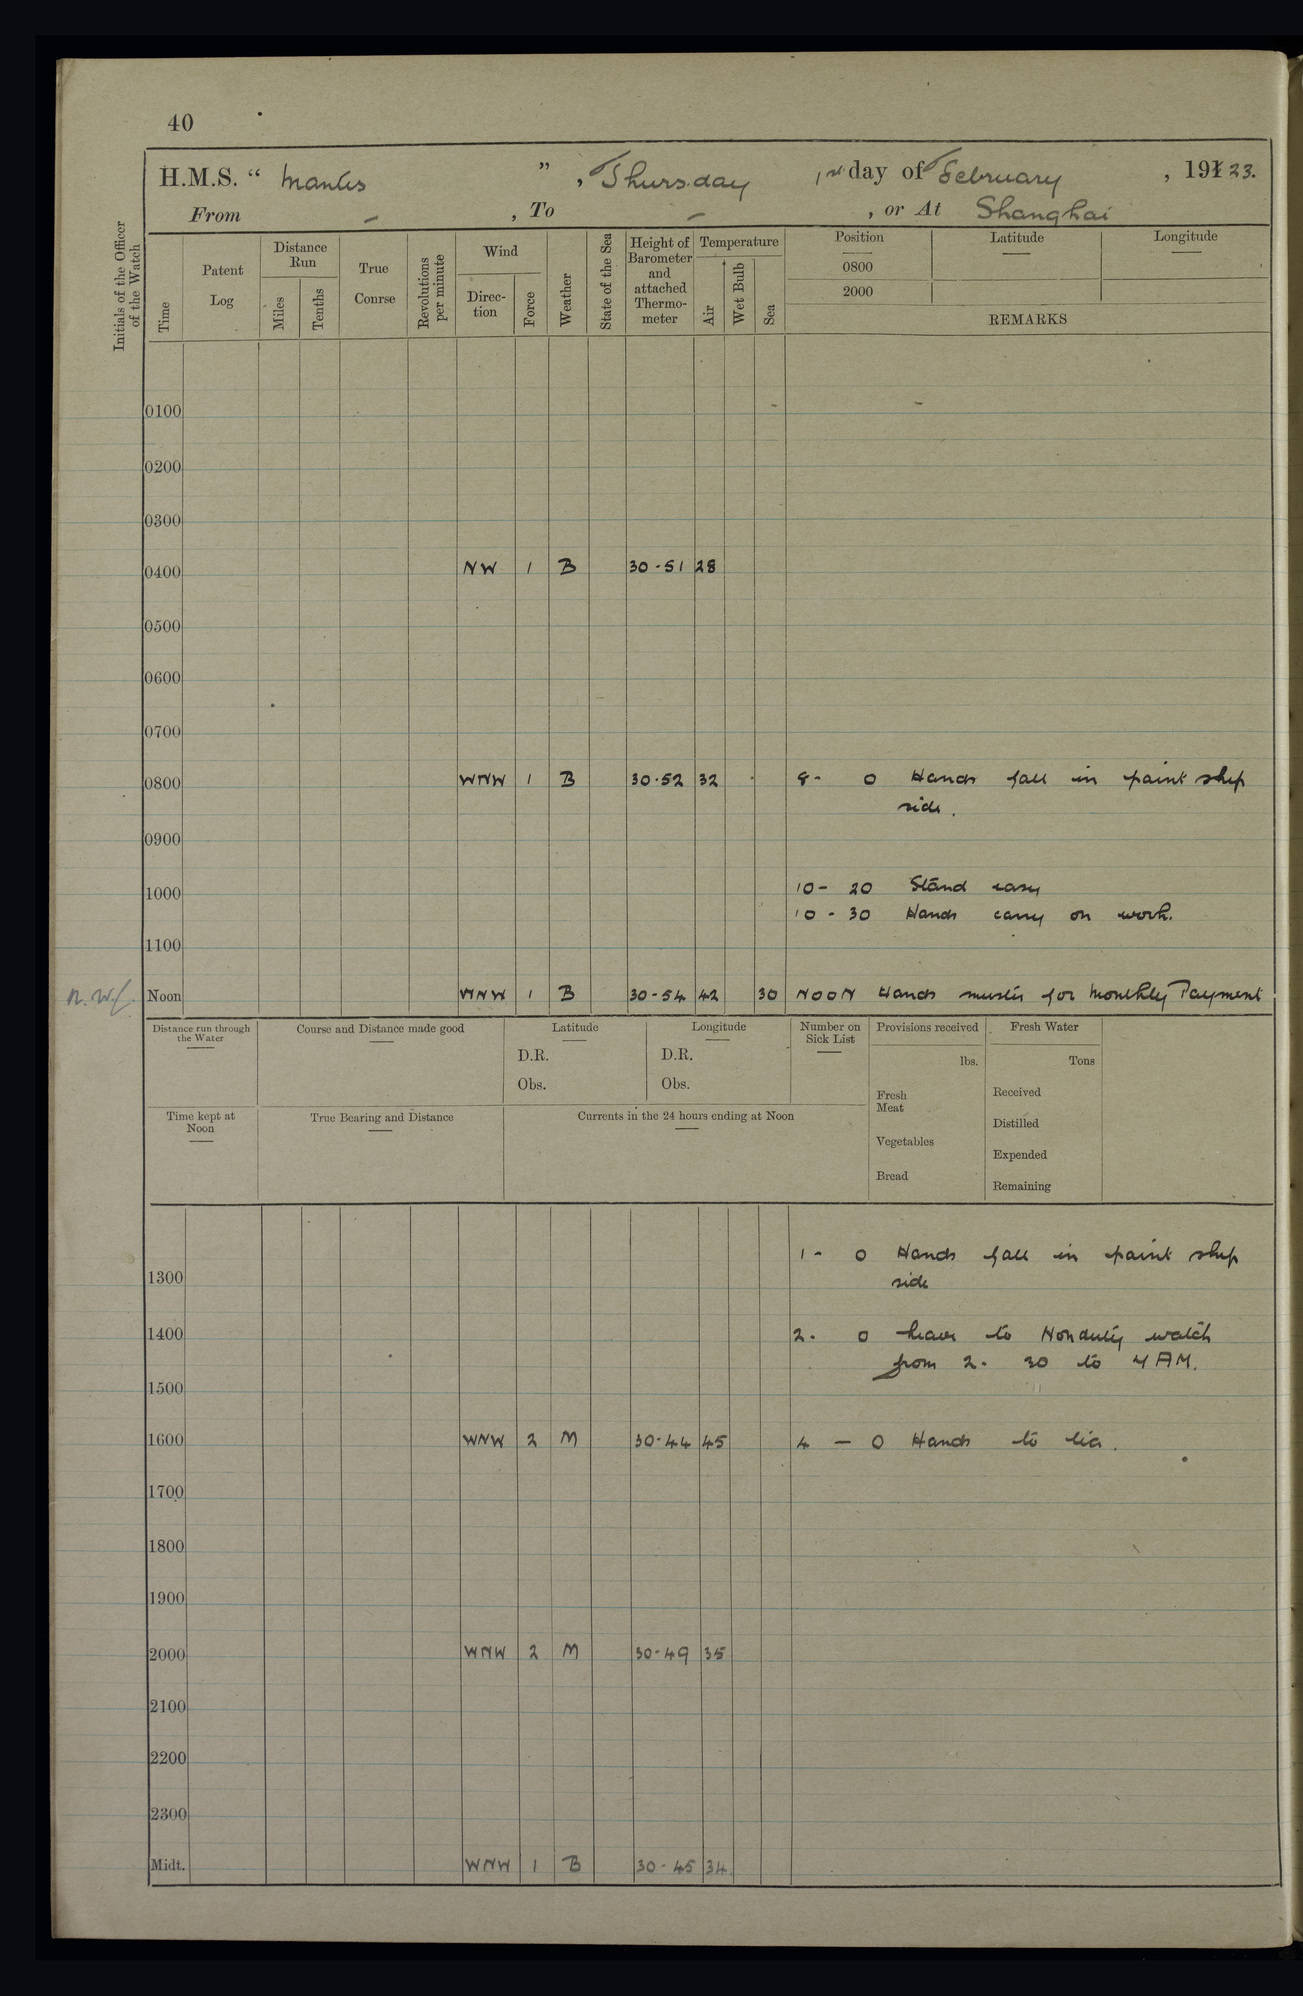 40
H.M.S. " Mantis ", Thursday 1st day of February, 191 23.
From - , To - , or At Shanghai
Initials of the Officer of the Watch
Time
Patent Log
Distance Run
Miles
Tenths
True Course
Revolutions per minute
Wind
Direction
Force
Weather
State of the Sea
Height of Barometer and attached Thermometer
Temperature
Air
Wet Bulb
Sea
Position Latitude Longitude
0800
2000
REMARKS
0100
0200
0300
0400 NW 1 B 30-51 28
0500
0600
0700
0800 WNW 1 B 30-52 32 8- 0 Hands fall in paint ship
side.
0900
1000 10- 20 Stand easy
10-30 Hands carry on work.
1100
Noon WNW 1 B 30-54 42 30 NOON Hands muster for Monthly Payment
Distance run through the Water
Course and Distance made good
Latitude
D.R.
Obs.
Longitude
D.R.
Obs.
Number on Sick List
Provisions received
lbs.
Fresh Meat
Vegetables
Bread
Fresh Water
Tons
Received
Distilled
Expended
Remaining
Time kept at Noon
True Bearing and Distance
Currents in the 24 hours ending at Noon
1- 0 Hands fall in paint ship
1300 side
1400 2- 0 leave to Nonduty watch
from 2- 30 to 4 AM.
1500
1600 WNW 2 M 30-44 45 4 - 0 Hands to tea.
1700
1800
1900
2000 WNW 2 M 30-49 35
2100
2200
2300
Midt. WNW 1 B 30-45 34